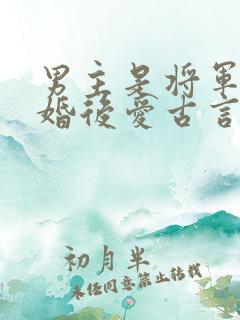 男主是將軍
婚後愛古言
初月半
未任同意禁止轉載